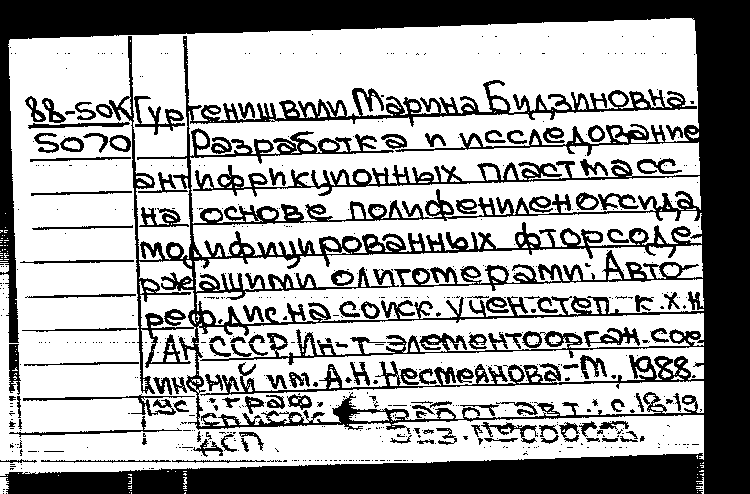 88-50К Гургенишвили, Марина Бидзиновна.
5070 Разработка и исследование
антифрикционных пластмасс
на основе полифениленоксида,
модифицированных фторсоде-
ржащими олигомерами: Авто-
реф. дис. на соиск. учен. степ. к.х.н
/АН СССР, Ин-т элементоорган. сое
динений им. А.Н. Несмеянова.-М., 1988.-
19с.: граф.
список работ авт.: с.18-19.
ДСП Экз. №000003.